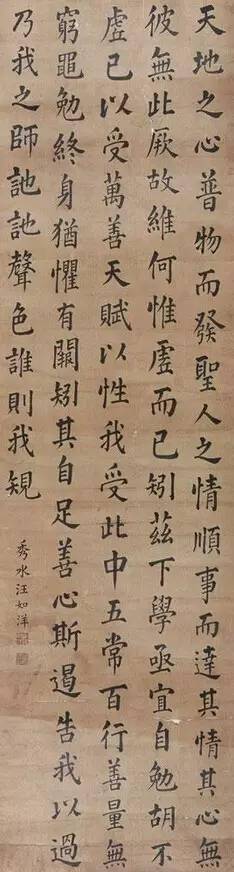 天地之心普物而發聖人之情順事而達其情其心無
彼無此厥故維何惟虛而已矧茲下學亟宜自勉胡不
虛已以受萬善天賦以性我受此中五常百行善量無
窮黽勉終身猶懼有闕矧其自足善心斯遏告我以過
乃我之師訑訑聲色誰則我規
秀水汪如洋